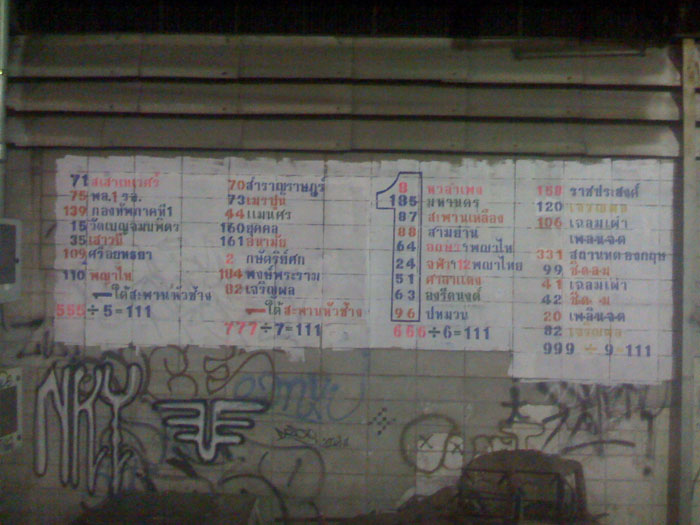 71 สเสาเทเวศร์
75 พล.1 รอ.
139 กองทัพภาคที่1
15 วัดเบญจมบพิตร
35 เสาวนี
109 ศรีอยุธยา
110 พญาไท
ใต้สะพานหัวช้าง
555÷5=111
70 สำราญราษฎร์
73 เมรุปูน
44 แม้นศรี
160 ยุคล
161 อนามัย
2 กษัตริย์ศึก
184 พงษ์พระราม
82 เจริญผล
ใต้สะพานหัวช้าง
777÷7=111
8 หัวลำโพง
185 มหานคร
87 สะพานเหลือง
88 สามย่าน
64 พญาไท
24 จุฬา 12 พญาไทย
51 ศาลาแดง
63 อังรีดูนังต์
96 ปทุมวัน
656÷6=111
159 ราชประสงค์
120 เจริญผล
106 เฉลิมเผ่า
เพลินจิต
331 สถานทูตอังกฤษ
99 ชิดลม
41 เฉลิมเผ่า
42 ชิดลม
20 เพลินจิต
82 เจริญผล
999 ÷ 9=111
NKY